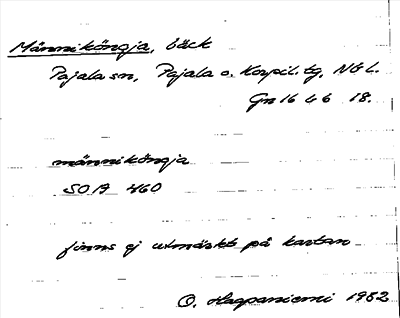 Männiköngja, bäck
Pajala sn, Pajala o. Korpil. tg, Nb L.
Gn 16 b 18.
männiköngja
SOA 460
finns ej utmärkt på kartan
O. Haapaniemi 1952